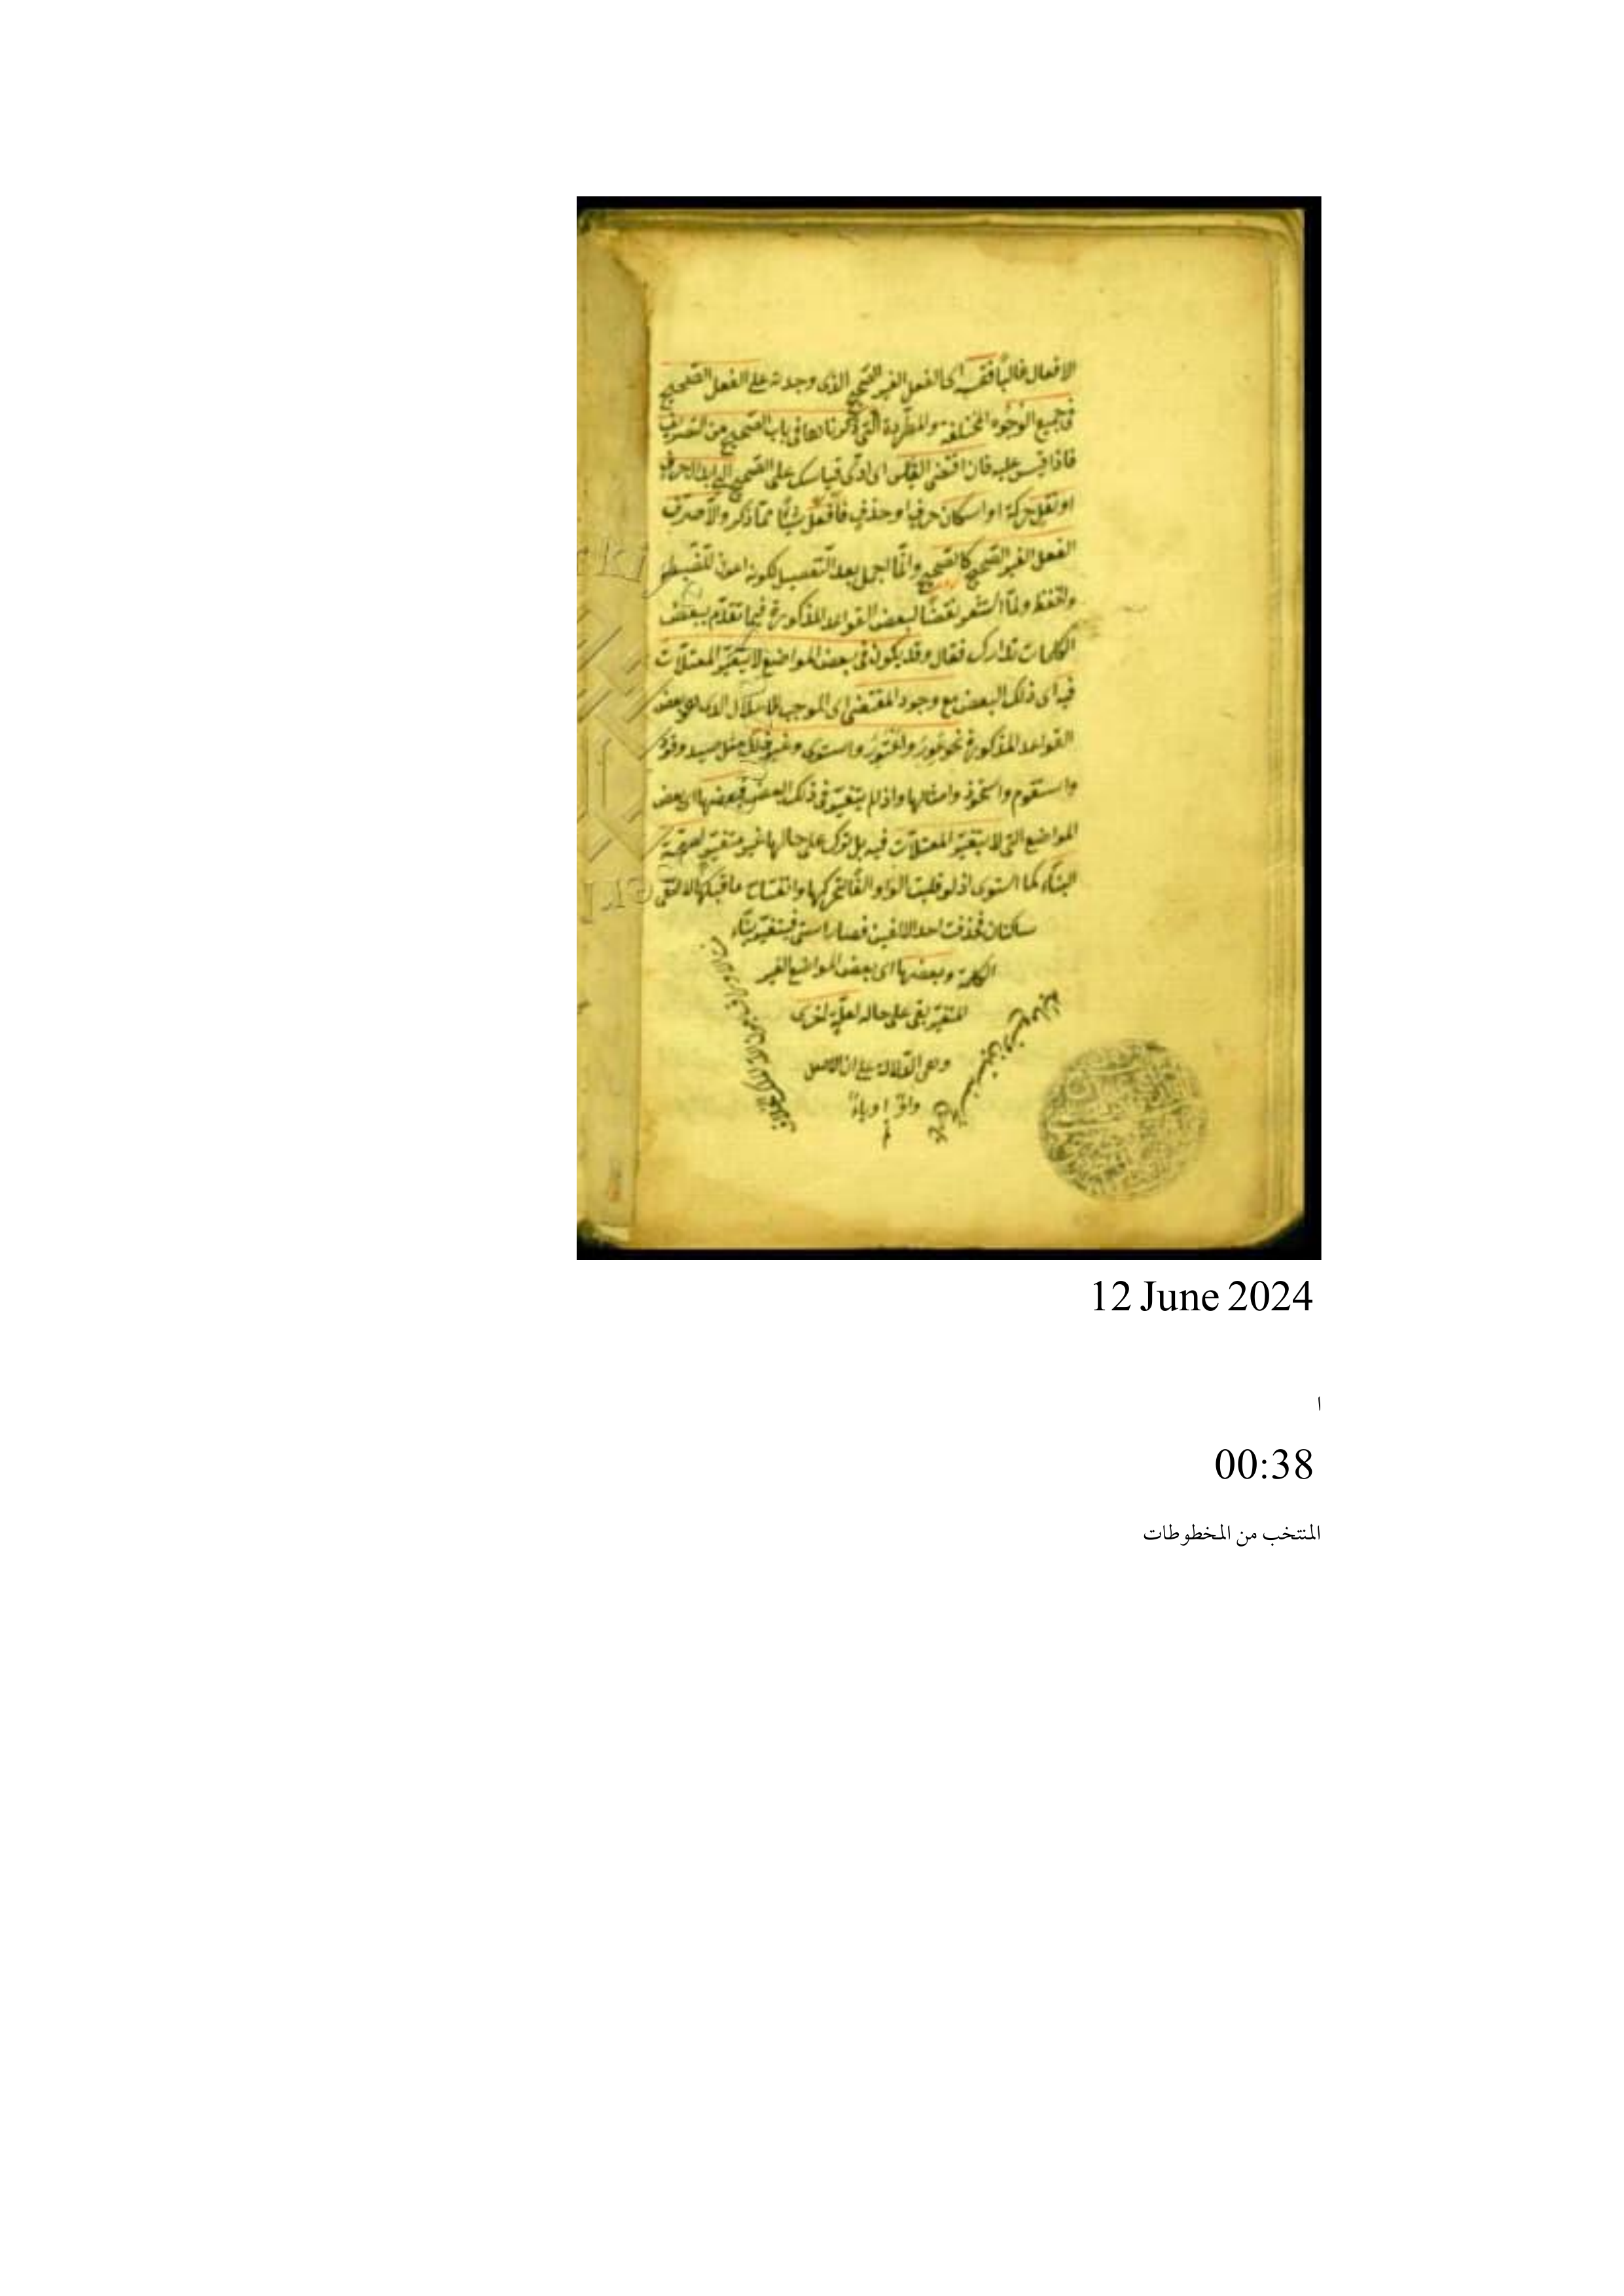 الافعال غالبًا فقسه اى الفعل الغير الصحيح الذى وجدته على الفعل الصحيح
فى جميع الوجوه المختلفة والمطردة التى ذكرناها فى باب الصحيح من التصريف
فاذا قيس عليه فان اقتضى القياس اى ادى قياسك على الصحيح الى ابدال حرف
او نقل حركة او اسكان حرف او حذف فافعل شيئًا مما ذكر والا صرف
الفعل الغير الصحيح كالصحيح وانما اجمل بعد التفصيل لكونه اعون للضبط
والحفظ ولما استشعر نقضًا لبعض القواعد المذكورة فيما تقدم ببعض
الكلمات تدارك فقال وقد يكون فى بعض المواضع لا يتغير المعتلات
فيه اى ذلك البعض مع وجود المقتضى اى الموجب للاعلال الذى هو بعض
القواعد المذكورة نحو عور واعتور واستوى وغير ذلك مثل صيد وقود
واستقوم واستحوذ وامثالها واذا لم يتغير فى ذلك البعض فبعضها اى بعض
المواضع التى لا يتغير المعتلات فيه بل ترك على حالها غير متغير لصحة
البناء كما استوى اذ لو قلبت الواو الفًا لتحركها وانفتاح ما قبلها لالتقى
ساكنان فحذفت احد الالفين فصار استى فيتغير بناء
الكلمة وبعضها اى بعض المواضع الغير
المتغير بقى على حاله لعلة اخرى
وهى الدلالة على ان الاصل
واوًا او ياءً
12 June 2024
ا
00:38
المنتخب من المخطوطات